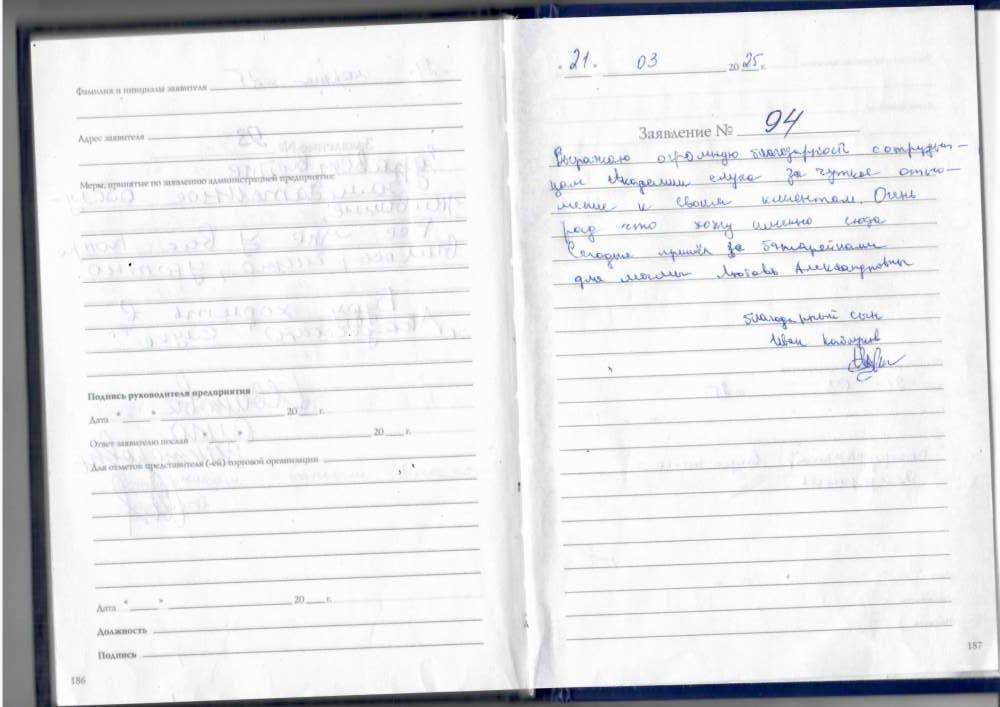 Фамилия и инициалы заявителя
Адрес заявителя
Меры, принятые по заявлению администрацией предприятия:
Подпись руководителя предприятия
Дата " " 20 г.
Ответ заявителю послан " " 20 г.
Для отметок представителя (-ей) торговой организации
Дата " " 20 г.
Должность
Подпись
186
" 21 " 03 2025 г.
Заявление № 94
Выражаю огромную благодарность сотрудни-
цам Академии слуха за чуткое отно-
шение к своим клиентам. Очень
рад что хожу именно сюда
Сегодня пришёл за батарейками
для мамы Любовь Александровны
Благодарный сын
Иван
187